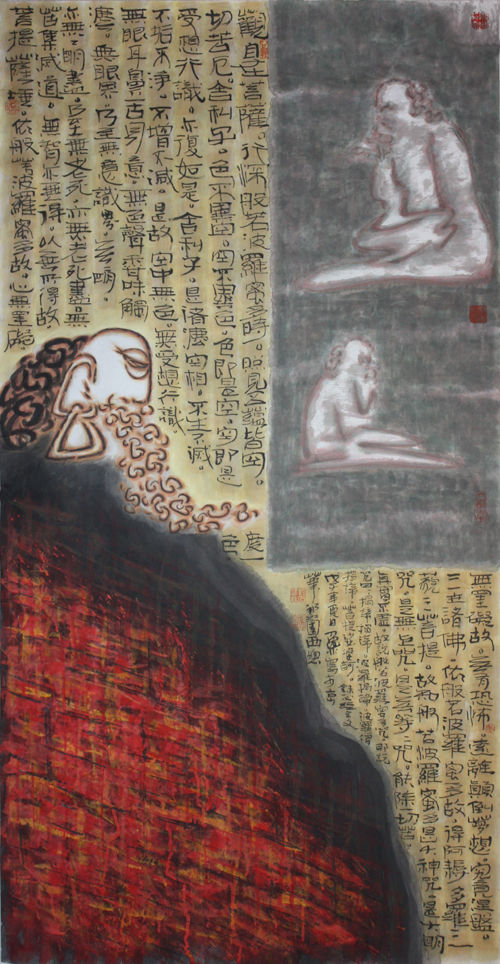 觀自在菩薩。行深般若波羅蜜多時。照見五蘊皆空。度一
切苦厄。舍利子。色不異空。空不異色。色即是空。空即是色。
受想行識。亦復如是。舍利子。是諸法空相。不生不滅。
不垢不淨。不增不減。是故空中無色。無受想行識。
無眼耳鼻舌身意。無色聲香味觸
法。無眼界。乃至無意識界。無無明。
亦無無明盡。乃至無老死。亦無老死盡。無
苦集滅道。無智亦無得。以無所得故
菩提薩埵。依般若波羅蜜多故。心無罣礙。
無罣礙故。無有恐怖。遠離顛倒夢想。究竟涅盤。
三世諸佛。依般若波羅蜜多故。得阿耨多羅三
藐三菩提。故知般若波羅蜜多是大神咒。是大明
咒。是無上咒。是無等等咒。能除切苦
真實不虛。故說般若波羅蜜多咒即說
咒曰揭諦揭諦 波羅揭諦 波羅僧
揭諦 菩提薩婆訶。
戊子年夏日